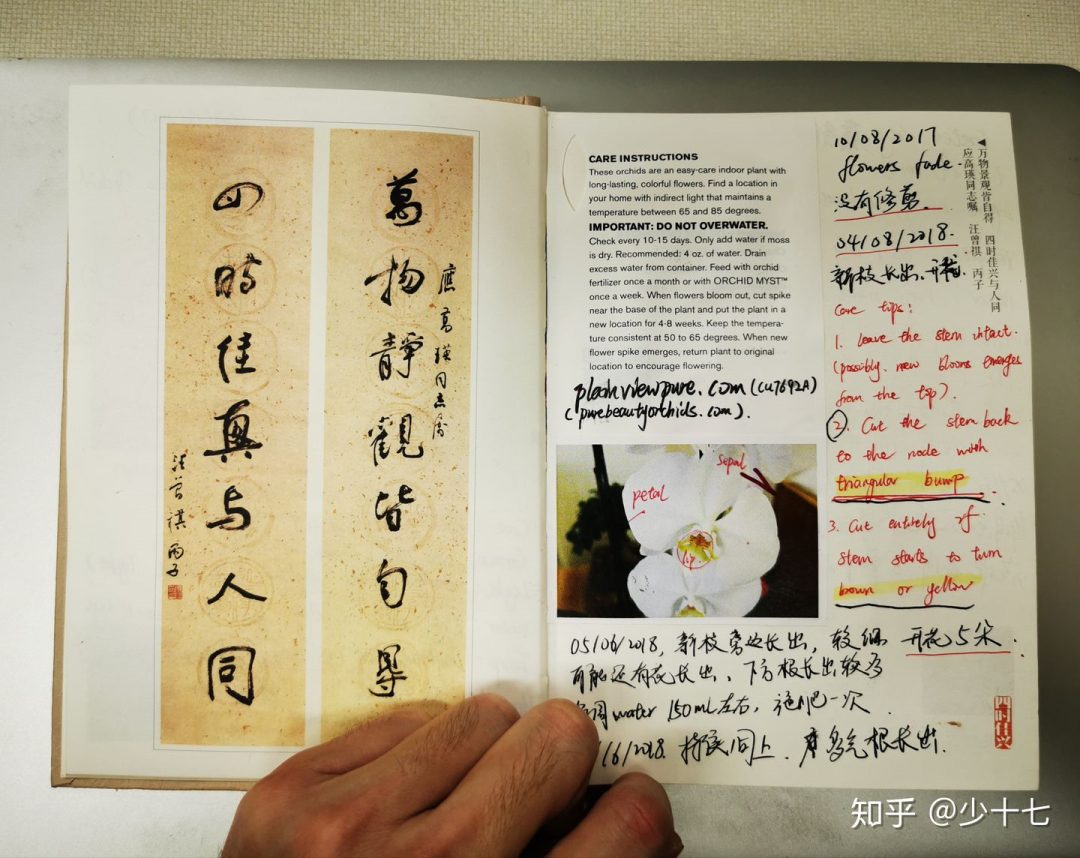 應高瑛同志屬
萬物靜觀皆自得
四時佳興与人同
汪曾祺 丙子
CARE INSTRUCTIONS
These orchids are an easy-care indoor plant with
long-lasting, colorful flowers. Find a location in
your home with indirect light that maintains a
temperature between 65 and 85 degrees.
IMPORTANT: DO NOT OVERWATER.
Check every 10-15 days. Only add water if moss
is dry. Recommended: 4 oz. of water. Drain
excess water from container. Feed with orchid
fertilizer once a month or with ORCHID MYST™
once a week. When flowers bloom out, cut spike
near the base of the plant and put the plant in a
new location for 4-8 weeks. Keep the tempera-
ture consistent at 50 to 65 degrees. When new
flower spike emerges, return plant to original
location to encourage flowering.
viewpure.com (cu7692A)
(purebeautyorchids.com).
petal
sepal
lip
10/08/2017
flowers fade.
没有修剪.
04/08/2018.
新枝长出、开花.
Care tips:
1. Leave the stem intact.
(possibly new blooms emerges
from the top).
2. Cut the stem back
to the node with
triangular bump
3. Cut entirely if
stem starts to turn
brown or yellow
◀万物景观皆自得 四时佳兴与人同
应高瑛同志嘱 汪曾祺 丙子
05/06/2018, 新枝旁边长出, 较细 开花5朵.
可能还有花长出、下方根长出较多
周water 150mL左右, 施肥一次.
/6/2018. 同上. 根长出.
四时佳兴
知乎 @少十七